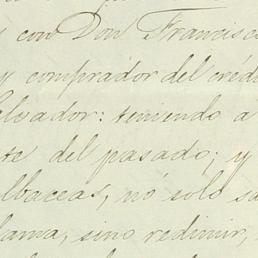 con Don Francisco
y comprador del crédi
lvador: teniendo a
te del pasado; y
lbaceas, no solo sa
lama, sino redimir,